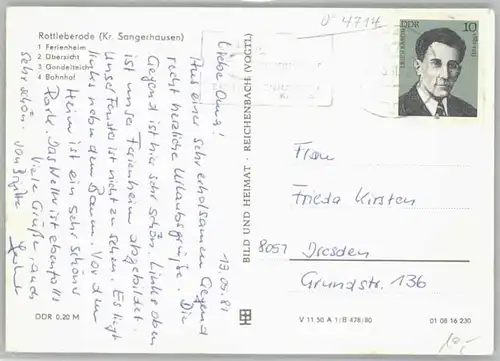 Rottleberode (Kr. Sangerhausen)
1 Ferienheim
2 Übersicht
3 Gondelteich
4 Bahnhof
19.05.81
Liebe Oma!
Aus einer sehr erholsamen Gegend
recht herzliche Urlaubsgrüße. Die
Gegend ist hier sehr schön. Links oben
ist unser Ferienheim abgebildet.
Unser Fenster ist nicht zu sehen. Es liegt
links neben dem Baum. Vor dem
Heim ist ein sehr schöner
Park. Das Wetter ist ebenfalls
sehr schön.
Viele Grüße, auch
von Birgitte
BILD UND HEIMAT · REICHENBACH (VOGTL)
0° 4714
DDR
10
Frau
Frieda Kirsten
8057 Dresden
Grundstr. 136
DDR 0,20 M
V 11 50 A 1/B 478/80
01 08 16 230